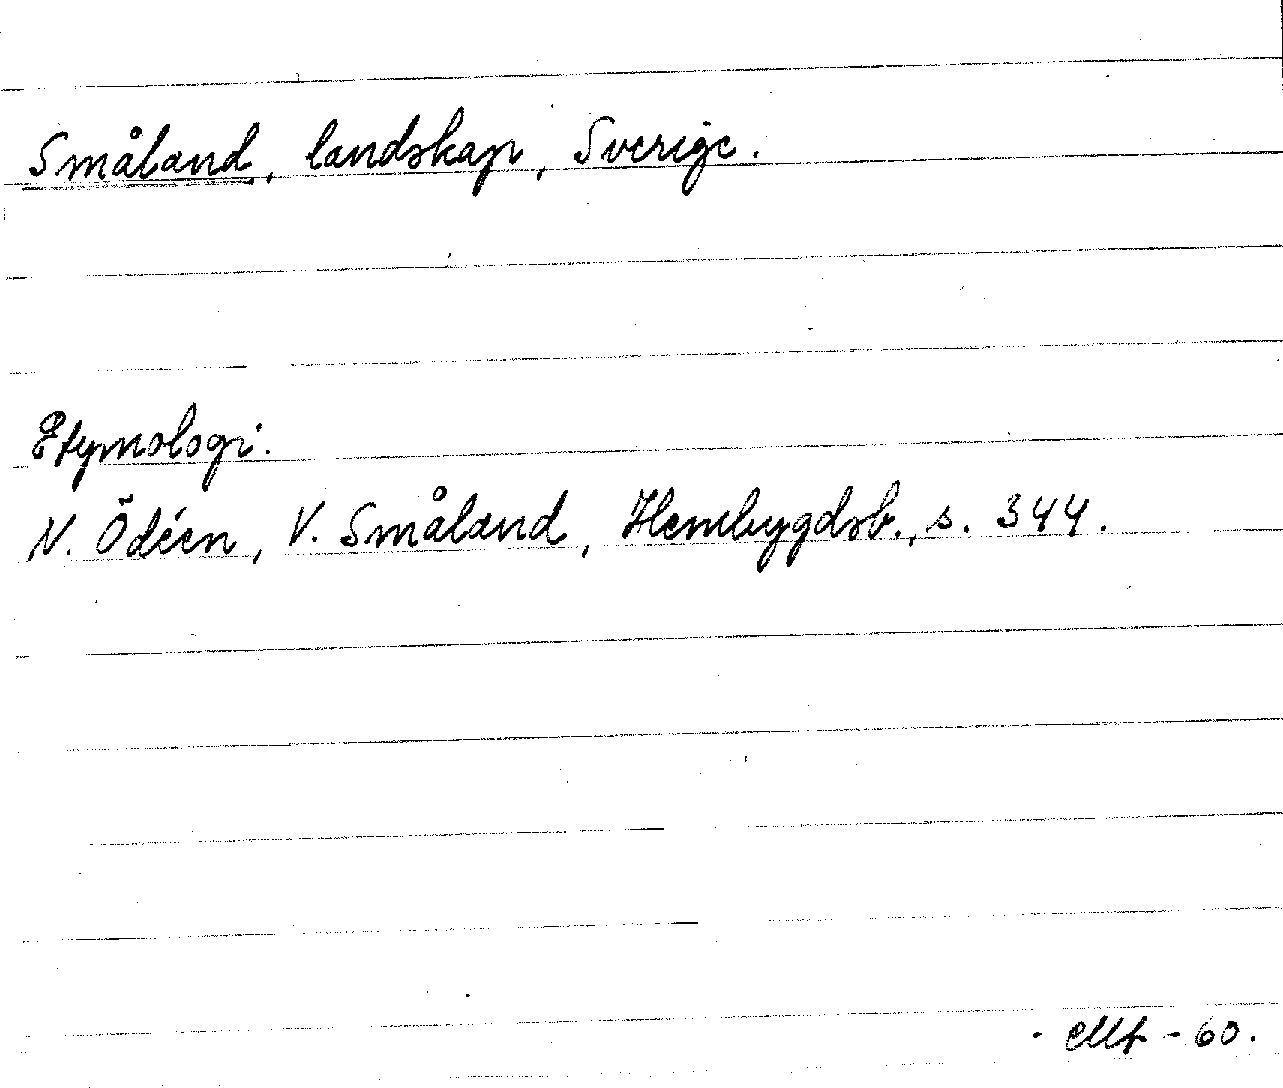 Småland, landskap, Sverige.
Etymologi.
N. Ödéen, V. Småland, Hembygdsb., s. 344.
-60.